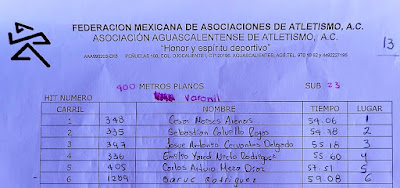 FEDERACION MEXICANA DE ASOCIACIONES DE ATLETISMO, A.C.
ASOCIACIÓN AGUASCALENTENSE DE ATLETISMO, A.C.
"Honor y espíritu deportivo"
13
400 METROS PLANOS SUB 23
HIT NUMERO Varonil
CARRIL NOMBRE TIEMPO LUGAR
1 348 Cesar Moises Arenas 54.06 1
2 335 Sebastian Calvillo Rojas 54.78 2
3 347 Josue Antonio Cervantes Delgado 55.18 3
4 336 Emilio Yared Nieto Rodriguez 55.60 4
5 405 Carlos Arturo Meza Diaz 57.51 5
6 1289 Baruc Rodriguez 59.08 6